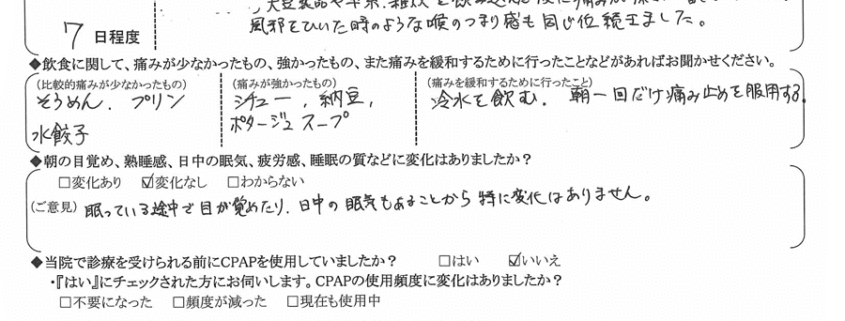 風邪をひいた時のような喉のつまり感も同じ位続きました。
7 日程度
◆飲食に関して、痛みが少なかったもの、強かったもの、また痛みを緩和するために行ったことなどがあればお聞かせください。
(比較的痛みが少なかったもの)
そうめん、プリン
水餃子
(痛みが強かったもの)
シチュー、納豆、
ポタージュスープ
(痛みを緩和するために行ったこと)
冷水を飲む、朝一回だけ痛み止めを服用する。
◆朝の目覚め、熟睡感、日中の眠気、疲労感、睡眠の質などに変化はありましたか?
□変化あり ☑変化なし □わからない
(ご意見) 眠っている途中で目が覚めたり、日中の眠気もあることから特に変化はありません。
◆当院で診療を受けられる前にCPAPを使用していましたか? □はい ☑いいえ
・『はい』にチェックされた方にお伺いします。CPAPの使用頻度に変化はありましたか?
□不要になった □頻度が減った □現在も使用中